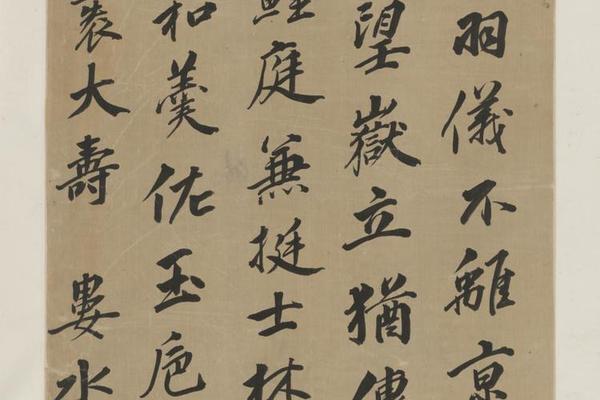 羽儀不離京
望嶽立猶傳
鯉庭兼挺士林
和羹佐玉卮
裝大壽 婁水